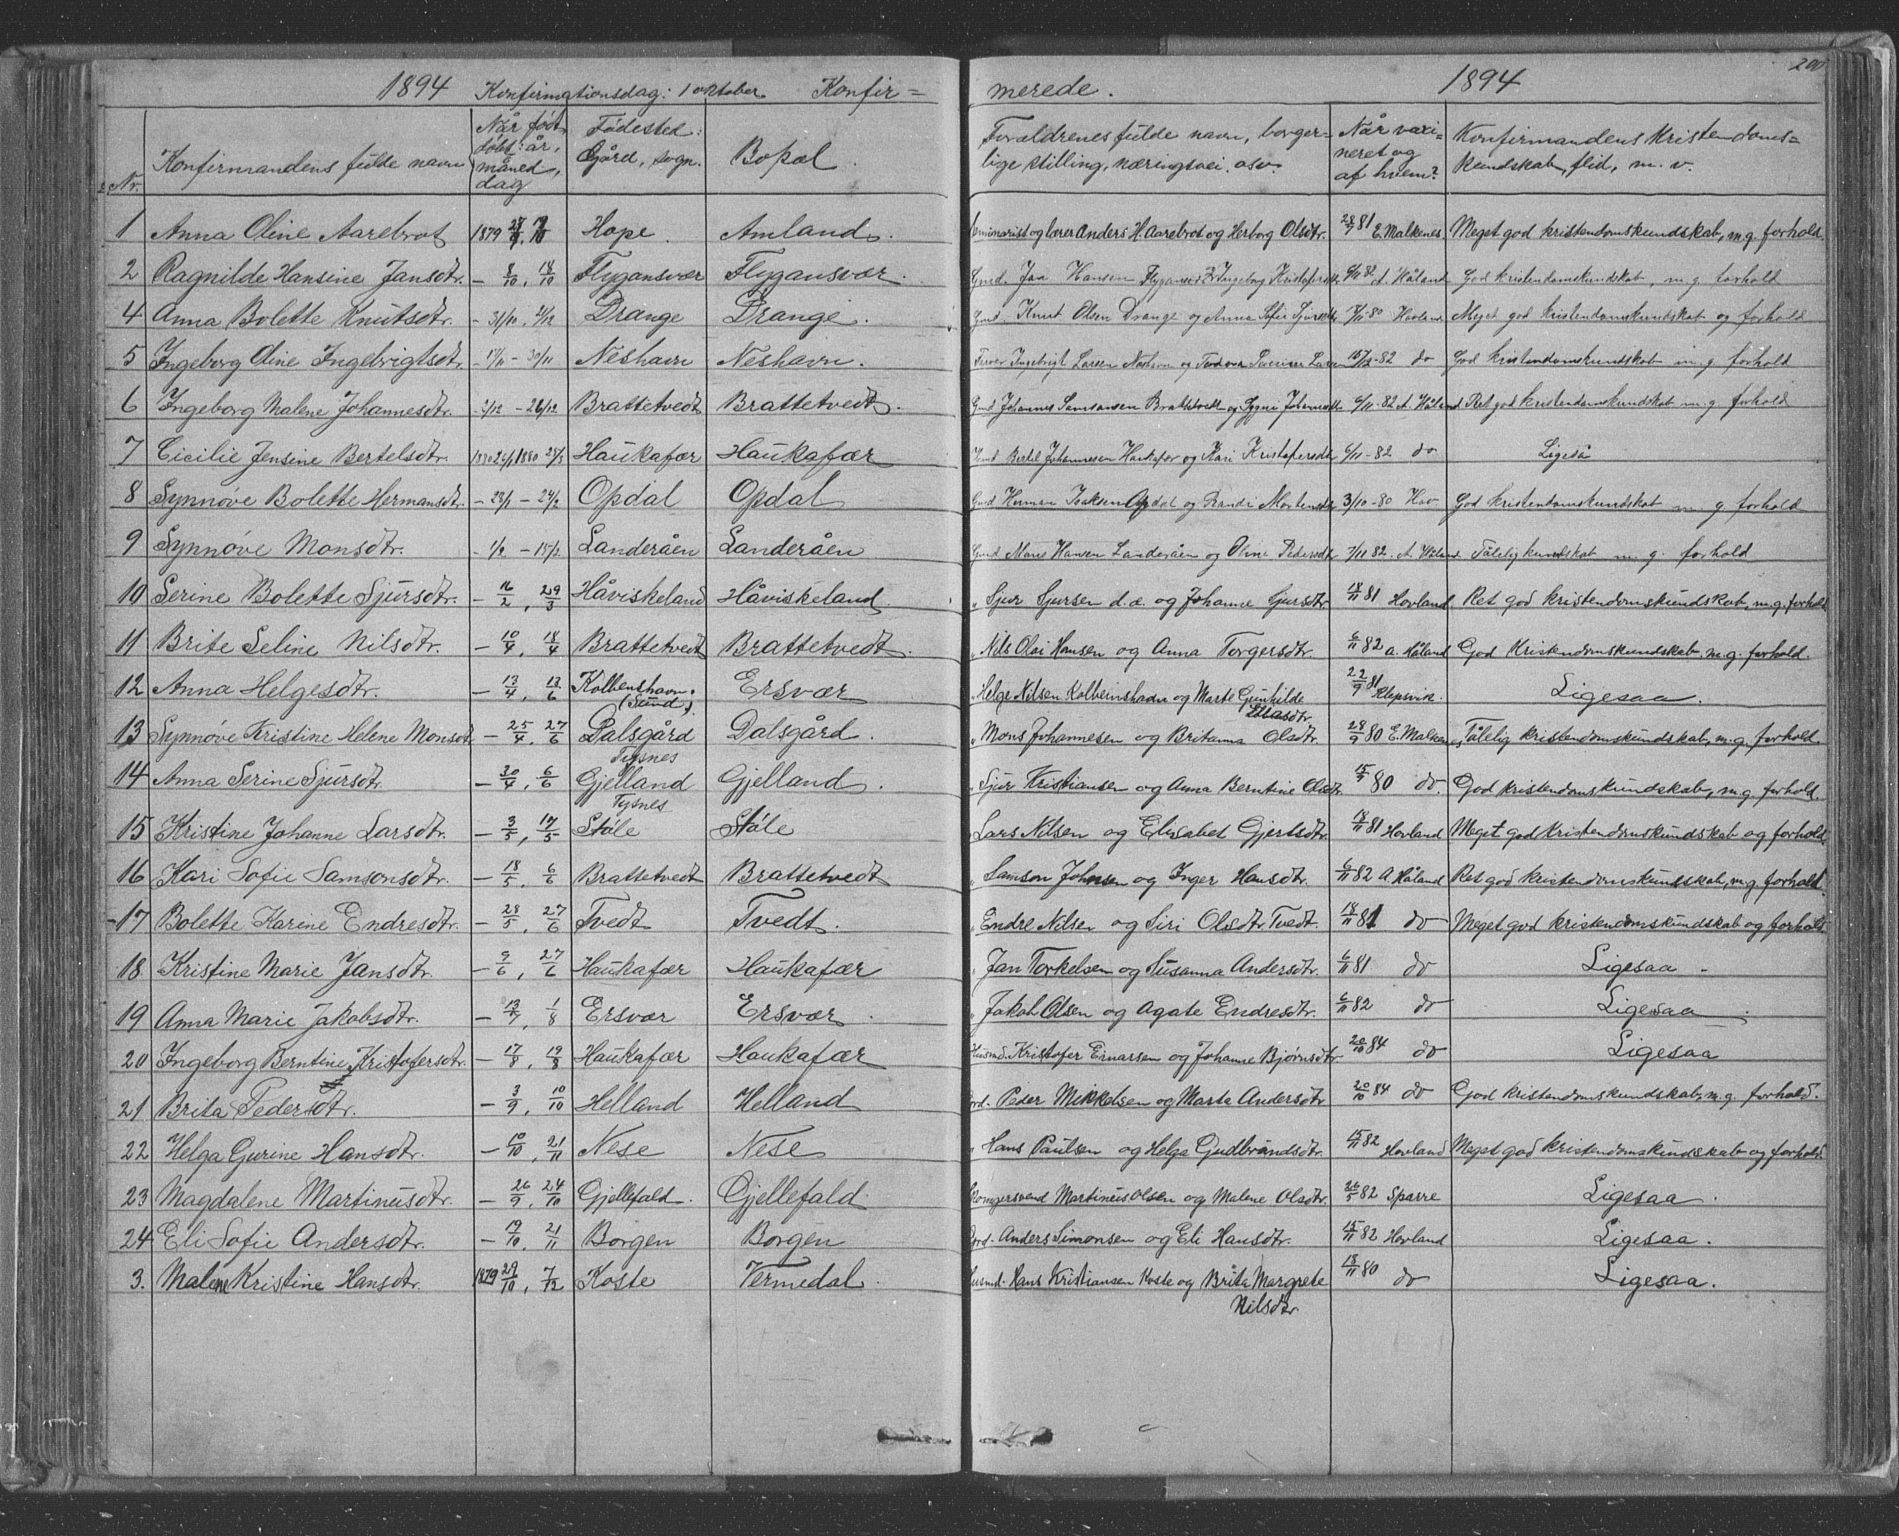 1894 Konfirmationsdag: 1 oktober Konfir=merede. 1894 200
Nr. Konfirmandens fulde navn Når født, døbt: år, måned, dag Fødested: Gård, sogn. Bopæl. Forældrenes fulde navn, borgerlige stilling, næringsvei osv. Når vaxineret og af hvem? Konfirmandens Kristendomskundskab, flid, m. v.
1 Anna Oline Aarebrot 1879 Hope Amland Seminarist og lærer Anders H. Aarebrot og Herborg Olsdtr. 28/9 81 E. Malkenes. Meget god kristendomskundskab, m.g. forhold.
2 Ragnilde Hansine Jansdtr. – 8/10, 18/10 Flygansvær Flygansvær. Gmd. Jaa Hansen og Ingeborg A. Håland God kristendomskundskab, m.g. forhold
4 Anna Bolette Knutsdtr. – 31/10, 21/12 Drange Drange. Gmd. Knut Olsen Drange og Anna Sofie -80 Hovland Meget god kristendomskundskab og forhold
5 Ingeborg Oline Ingebrigtsdtr. – 17/11 – 30/11 Neshavn Neshavn. Ingebrigt Larsen Neshavn og 15/12 -82 do God kristendomskundskab m.g. forhold
6 Ingeborg Malene Johannesdtr. – 2/12 – 26/12 Brattetvedt Brattetvedt. Gmd Johannes Samsonsen Brattetvedt og 6/11 -82 A. Håland Ret god kristendomskundskab m.g. forhold
7 Cicilie Jensine Bertelsdtr. 1880 Haukafær Haukafær Bertel Johannesen Haukafær og Kari Kristofersdtr 6/11 -82 do Ligeså
8 Synnøve Bolette Hermansdtr. – 23/1 – 24/2 Opdal Opdal Gmd Herman Isaksen Opdal og Randi Mortensdtr 3/10 -80 Hov God kristendomskundskab m. g. forhold
9 Synnøve Monsdtr. – 1/2 – 15/2 Landeråen Landeråen Gmd Mons Hansen Landeråen og Oline Pedersdtr 7/11 82. A Håland Tålelig kundskab m. g. forhold
10 Serine Bolette Sjursdtr. – 16/2, 29/3 Håviskeland Håviskeland „ Sjur Sjursen d.æ. og Johanne Sjursdtr 18/11 81 Hovland Ret god kristendomskundskab, m.g. forhold
11 Brite Seline Nilsdtr. – 10/4, 18/4 Brattetvedt Brattetvedt. „ Nils Olai Hansen og Anna Torgersdtr. 6/11 82 A Håland God Kristendomskundskab. m.g. forhold.
12 Anna Helgesdtr. – 13/4, 13/6 Kolbenshavn.
(Sund). Ersvær „ Helge Nilsen Kolbeinshavn og Marte Gunhilde
22/9 81 Klepsvik. Ligesaa.
13 Synnøve Kristine Helene Monsdtr – 25/4, 27/6 Dalsgård
Tysnes Dalsgård. „ Mons Johannesen og Britanna Olsdtr. 28/9 80 E. Malkenes Tålelig kristendomskundskab, m.g. forhold.
14 Anna Serine Sjursdtr. – 30/4, 6/6 Gjelland
Tysnes Gjelland. „ Sjur Kristiansen og Anna Berntine Olsdtr. 80 do. God kristendomskundskab, m.g. forhold.
15 Kristine Johanne Larsdtr. – 3/5, 17/5 Støle Støle „ Lars Nilsen og Elisabet Gjertsdtr. 18/11 81 Hovland Meget god kristendomskundskab og forhold
16 Kari Sofie Samsonsdtr. – 18/5, 6/6 Brattetvedt Brattetvedt „ Samson Johnsen og Inger Hansdtr. 6/11 82 A Håland Ret god kristendomskundskab, m.g. forhold.
17 Bolette Karine Endresdtr. – 28/5, 27/6 Tvedt Tvedt. „ Endre Nilsen og Siri Olsdtr Tvedt. 18/11 81 do Meget god kristendomskundskab og forhold
18 Kristine Marie Jansdtr. – 9/6, 27/6 Haukafær Haukafær „ Jan Torkelsen og Susanna Andersdtr. 6/11 81 do Ligesaa
19 Anna Marie Jakobsdtr. – 13/7, 1/8 Ersvær Ersvær. „ Jakob Olsen og Agate Endresdtr. 6/11 82 do Ligesaa.
20 Ingeborg Berntine Kristofersdtr. – 17/8, 19/8 Haukafær Haukafær Husmd. Kristofer Ernarsen og Johanne Bjørnsdtr 20/10 84 do Ligesaa
21 Brita Pedersdtr. – 3/9, 10/10 Helland Helland Grd. Peder Mikkelsen og Marta Andersdtr 20/10 84 do God kristendomskundskab, m.g. forhold.
22 Helga Gurine Hansdtr. – 10/10, 21/11 Nese Nese „ Hans Paulsen og Helga Gudbrandsdtr. 15/11 82 Hovland Meget god kristendomskundskab og forhold
23 Magdalene Martinusdtr. – 26/9, 24/10 Gjellefald. Gjellefald. Martinus Olsen og Malene Olsdtr. 26/5 82 Sparre Ligesaa.
24 Eli Sofie Andersdtr. – 19/10, 21/11 Borgen Borgen Grd. Anders Simonsen og Eli Hansdtr. 15/11 82 Hovland Ligesaa.
3. Malene Kristine Hansdtr. 1879 29/10, 7/12 Koste Vermedal. Husmd. Hans Kristiansen Koste og Brita Margrete
Nilsdtr. 18/11 80 do Ligesaa.